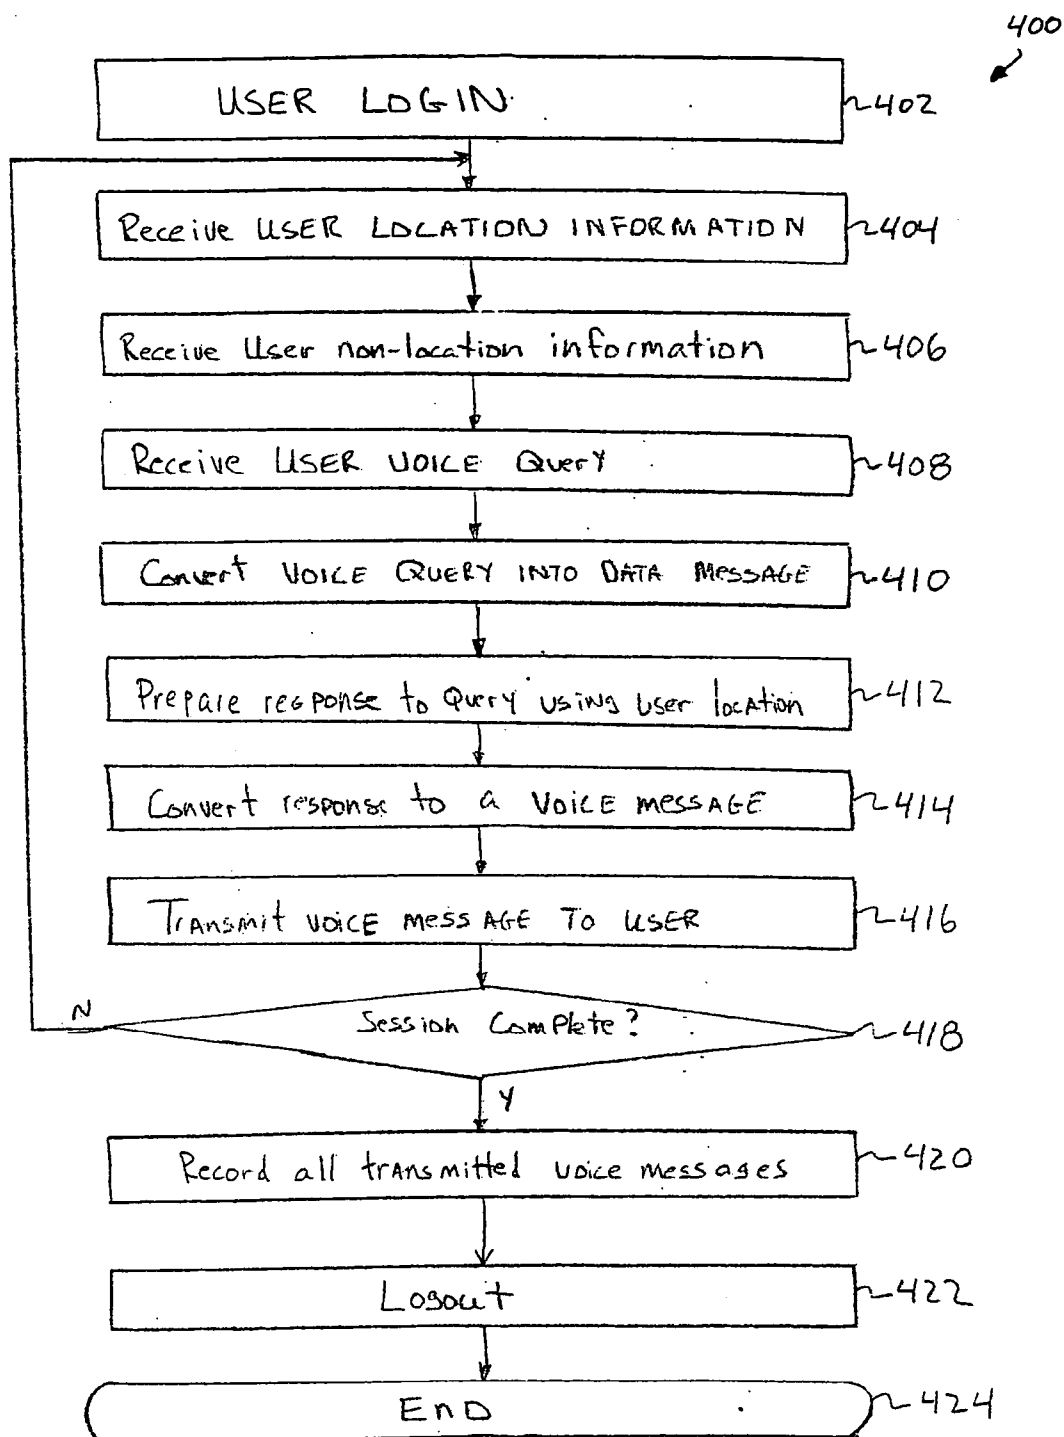 400
USER LOGIN 402
Receive USER LOCATION INFORMATION 404
Receive User non-location information 406
Receive USER VOICE Query 408
Convert VOICE QUERY INTO DATA MESSAGE 410
Prepare response to Query using user location 412
Convert response to a VOICE MESSAGE 414
Transmit VOICE MESSAGE TO USER 416
N
Session Complete? 418
Y
Record all transmitted voice messages 420
Logout 422
End 424